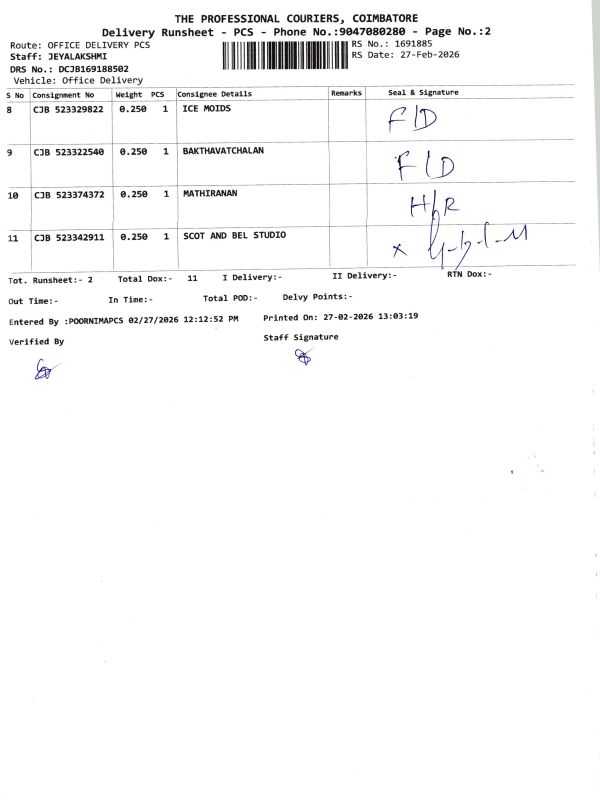 THE PROFESSIONAL COURIERS, COIMBATORE
Delivery Runsheet - PCS - Phone No.:9047080280 - Page No.:2
Route: OFFICE DELIVERY PCS RS No.: 1691885
Staff: JEYALAKSHMI RS Date: 27-Feb-2026
DRS No.: DCJB169188502
Vehicle: Office Delivery
S No Consignment No Weight PCS Consignee Details Remarks Seal & Signature
8 CJB 523329822 0.250 1 ICE MOIDS F/D
9 CJB 523322540 0.250 1 BAKTHAVATCHALAN F/D
10 CJB 523374372 0.250 1 MATHIRANAN
11 CJB 523342911 0.250 1 SCOT AND BEL STUDIO
Tot. Runsheet:- 2 Total Dox:- 11 I Delivery:- II Delivery:- RTN Dox:-
Out Time:- In Time:- Total POD:- Delvy Points:-
Entered By :POORNIMAPCS 02/27/2026 12:12:52 PM Printed On: 27-02-2026 13:03:19
Verified By Staff Signature